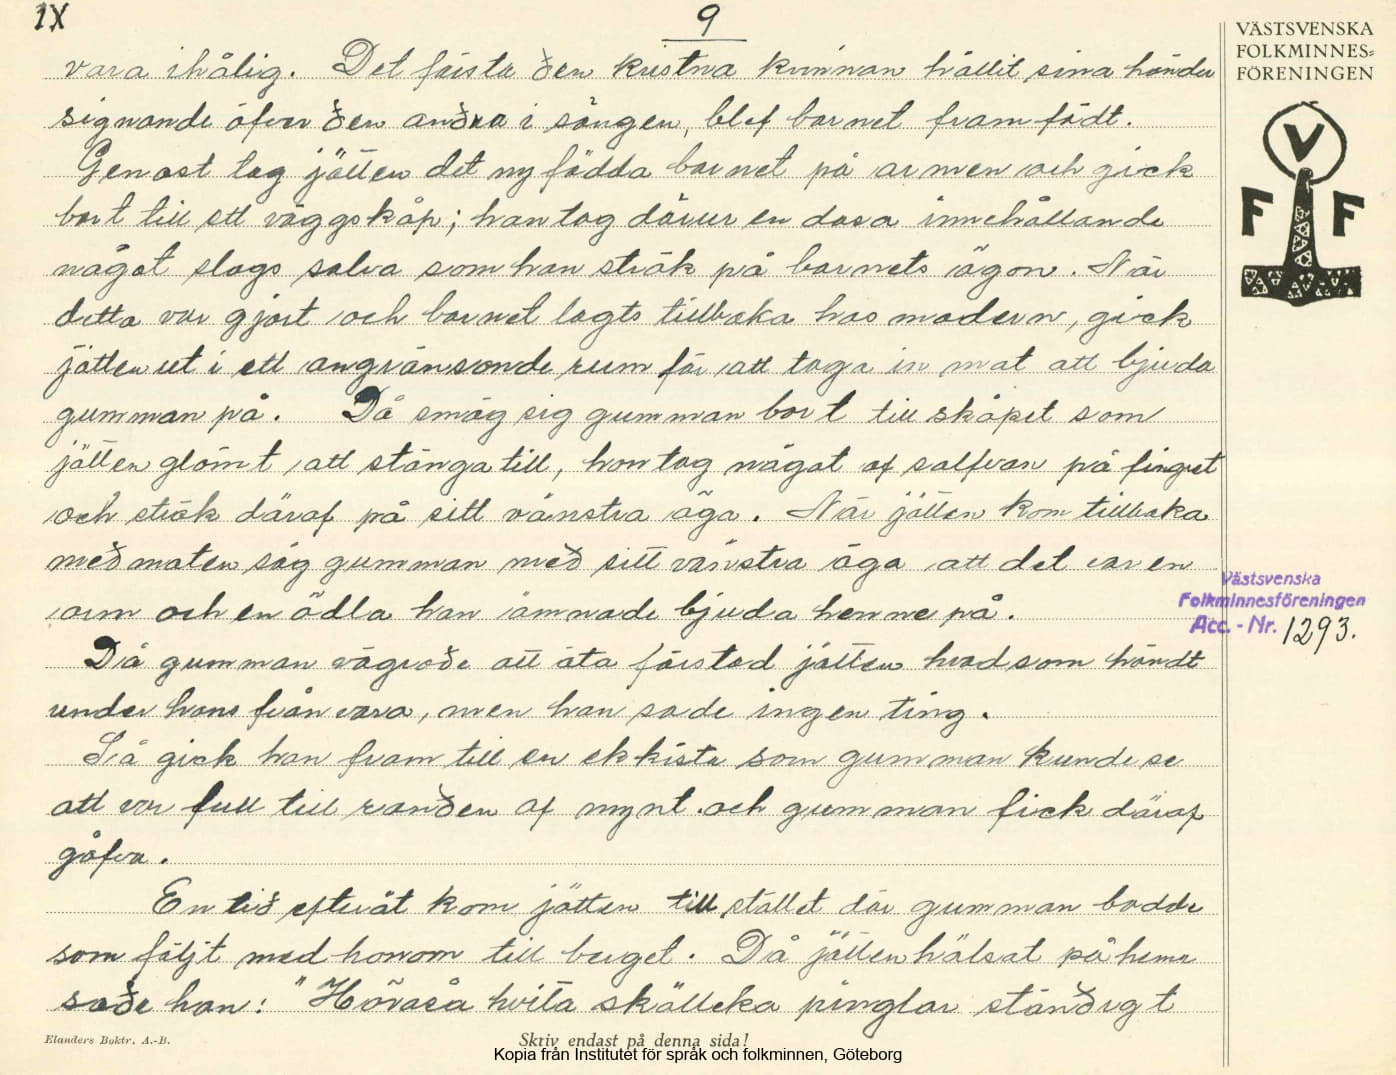 IX
9
vara ihålig. Det första den kristna kvinnan hållit sina händer
signande öfver den andra i sängen, blef barnet framfödt.
Genast tog jätten det nyfödda barnet på armen och gick
bort till ett väggskåp; han tog därur en dosa innehållande
något slags salva som han strök på barnets ögon. När
detta var gjort och barnet lagts tillbaka hos modern, gick
jätten ut i ett angränsande rum för att taga in mat att bjuda
gumman på. Då smög sig gumman bort till skåpet som
jätten glömt att stänga till, hon tog något af salfvan på fingret
och strök däraf på sitt vänstra öga. När jätten kom tillbaka
med maten såg gumman med sitt vänstra öga att det var en
orm och en ödla han ämnade bjuda henne på.
Då gumman vägrade att äta förstod jätten hvad som händt
under hans frånvaro, men han sade ingen ting.
Så gick han fram till en ekkista som gumman kunde se
att var full till randen af mynt och gumman fick däraf
gåfva.
En tid efteråt kom jätten till stället där gumman bodde
som följt med honom till berget. Då jätten hälsat på henne
sade han: "Höraså hvita skälleka pinglar ständigt
VÄSTSVENSKA
FOLKMINNES=
FÖRENINGEN
V
F F
Västsvenska
Folkminnesföreningen
Acc. - Nr. 1293.
Elanders Boktr. A.-B.
Skriv endast på denna sida!
Kopia från Institutet för språk och folkminnen, Göteborg